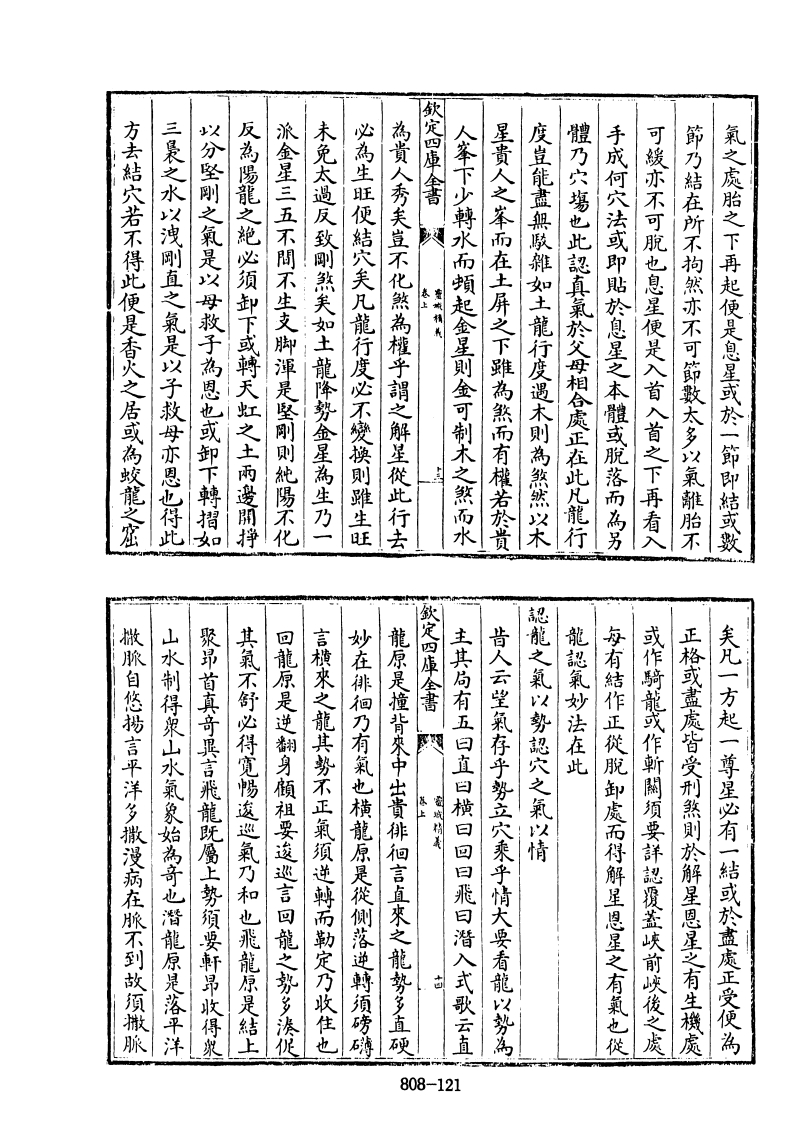 氣之處胎之下再起便是息星或於一節即結或數
節乃結在所不拘然亦不可節數太多以氣離胎不
可緩亦不可脫也息星便是入首入首之下再看入
手成何穴法或即貼於息星之本體或脫落而為另
體乃穴塲也此認真氣於父母相合處正在此凡龍行
度豈能盡無駁雜如土龍行度遇木則為煞然以木
星貴人之峯而在土屏之下雖為煞而有權若於貴
人峯下少轉水而頓起金星則金可制木之煞而水
欽定四庫全書
靈城精義
卷上
十三
為貴人秀矣豈不化煞為權乎謂之解星從此行去
必為生旺便結穴矣凡龍行度必不變換則雖生旺
未免太過反致剛煞矣如土龍降勢金星為生乃一
派金星三五不間不生支脚渾是堅剛則純陽不化
反為陽龍之絶必須卸下或轉天虹之土兩邊開挣
以分堅剛之氣是以母救子為恩也或卸下轉摺如
三晨之水以洩剛直之氣是以子救母亦恩也得此
方去結穴若不得此便是香火之居或為蛟龍之窟
矣凡一方起一尊星必有一結或於盡處正受便為
正格或盡處皆受刑煞則於解星恩星之有生機處
或作騎龍或作斬關須要詳認覆蓋峽前峽後之處
每有結作正從脫卸處而得解星恩星之有氣也從
龍認氣妙法在此
認龍之氣以勢認穴之氣以情
昔人云望氣存乎勢立穴乘乎情大要看龍以勢為
主其局有五曰直曰橫曰回曰飛曰潛入式歌云直
欽定四庫全書
靈城精義
卷上
十四
龍原是撞背來中出貴徘徊言直來之龍勢多直硬
妙在徘徊乃有氣也橫龍原是從側落逆轉須磅礴
言橫來之龍其勢不正氣須逆轉而勒定乃收住也
回龍原是逆翻身顧祖要逡巡言回龍之勢多湊促
其氣不舒必得寬暢逡巡氣乃和也飛龍原是結上
聚昂首真奇異言飛龍既屬上勢須要軒昂收得衆
山水制得衆山水氣象始為奇也潛龍原是落平洋
撒脈自悠揚言平洋多撒漫病在脈不到故須撒脈
808-121